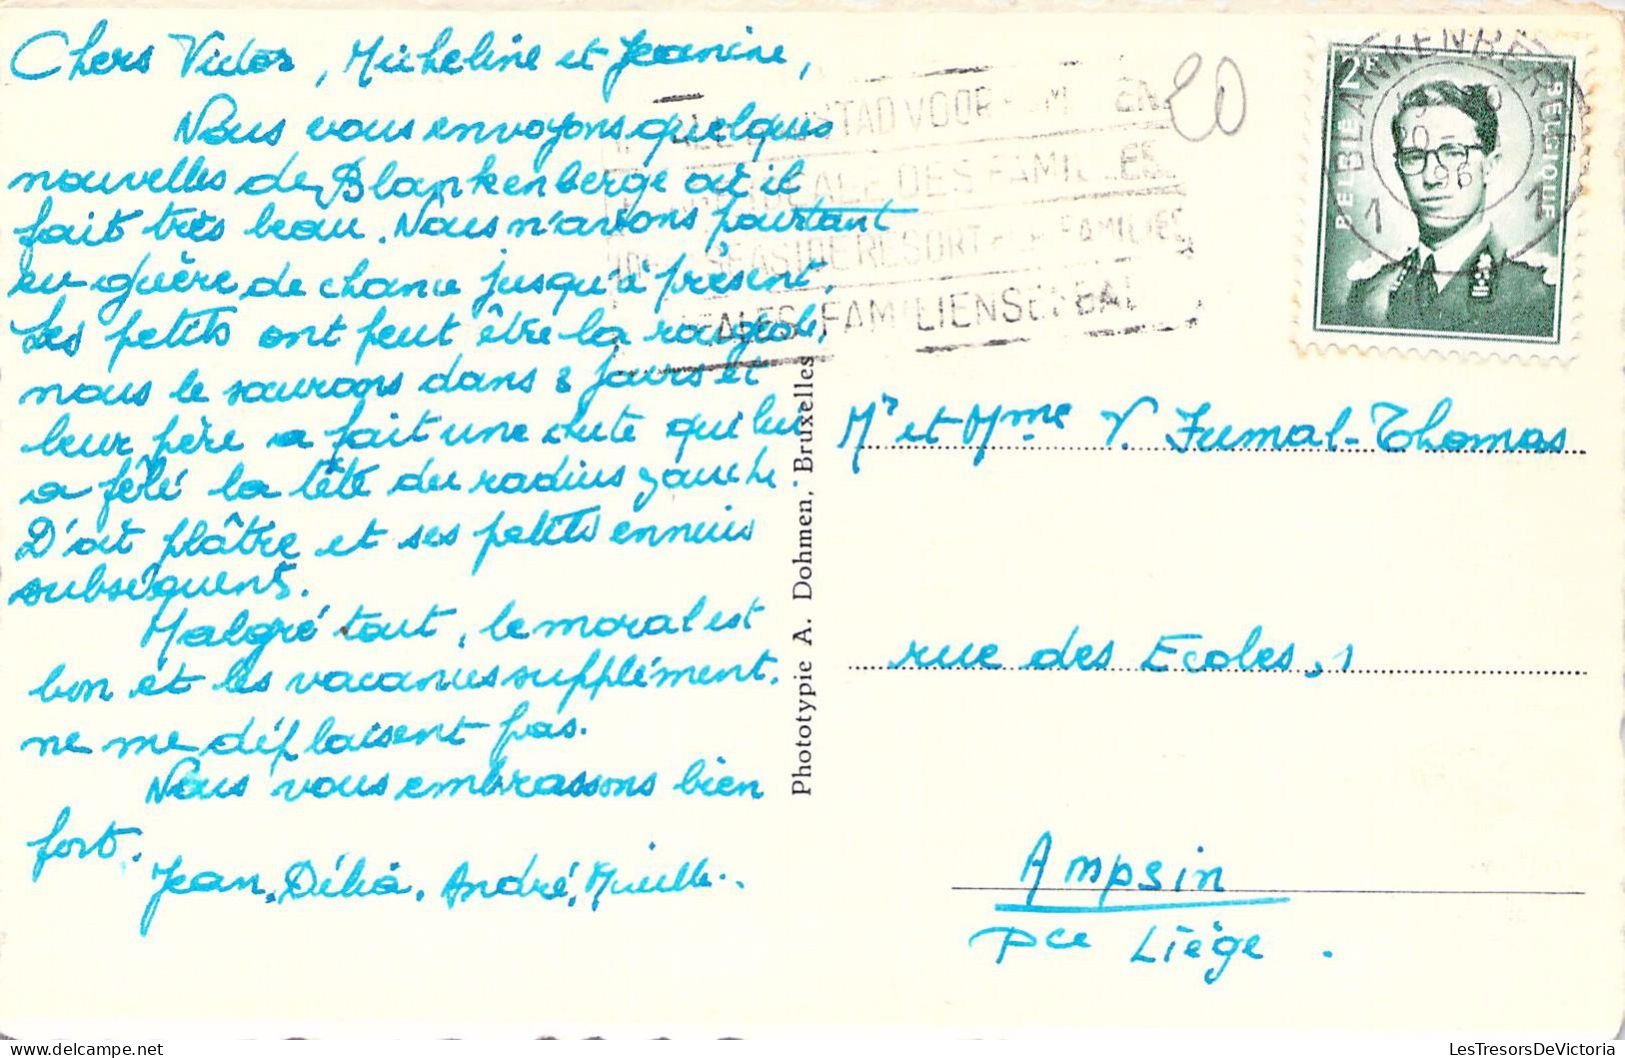 Chers Victor, Micheline et Jeanine,
Nous vous envoyons quelques
nouvelles de Blankenberge où il
fait très beau. Nous n'avons pourtant
eu guère de chance jusqu'à présent.
Les petits ont peut être la rougeole,
nous le saurons dans 8 jours et
leur père a fait une chute qui lui
a fêlé la tête du radius gauche.
D'où plâtre et ses petits ennuis
subséquents.
Malgré tout, le moral est
bon et les vacances supplément.
ne me déplaisent pas.
Nous vous embrassons bien
fort.
Jean, Délia, André,
Phototypie A. Dohmen, Bruxelles
20
BLANKENBERGE
1 1
2F
BELGIE BELGIQUE
STAD VOOR
DES FAMILLES
SEASIDE RESORT FAMILIES
FAMILIENSEEBAD
Mr et Mme V. Fumal-Thomas
rue des Ecoles, 1
Ampsin
Pce Liège.
LesTresorsDeVictoria